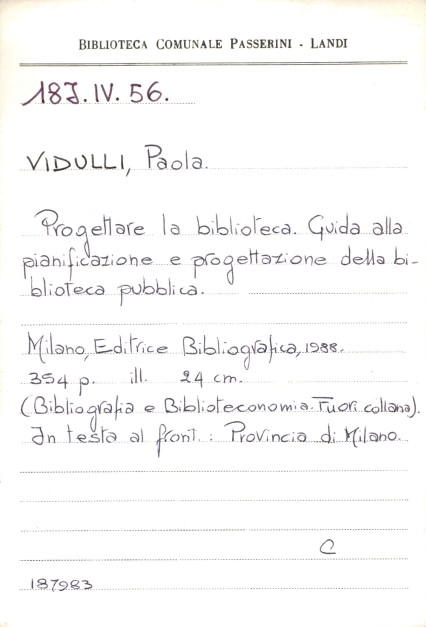 BIBLIOTECA COMUNALE PASSERINI - LANDI
18J.IV.56.
VIDULLI, Paola.
Progettare la biblioteca. Guida alla
pianificazione e progettazione della bi-
blioteca pubblica.
Milano, Editrice Bibliografica, 1988.
354 p. ill. 24 cm.
(Bibliografia e Biblioteconomia. Fuori collana).
In testa al front.: Provincia di Milano.
C
187983